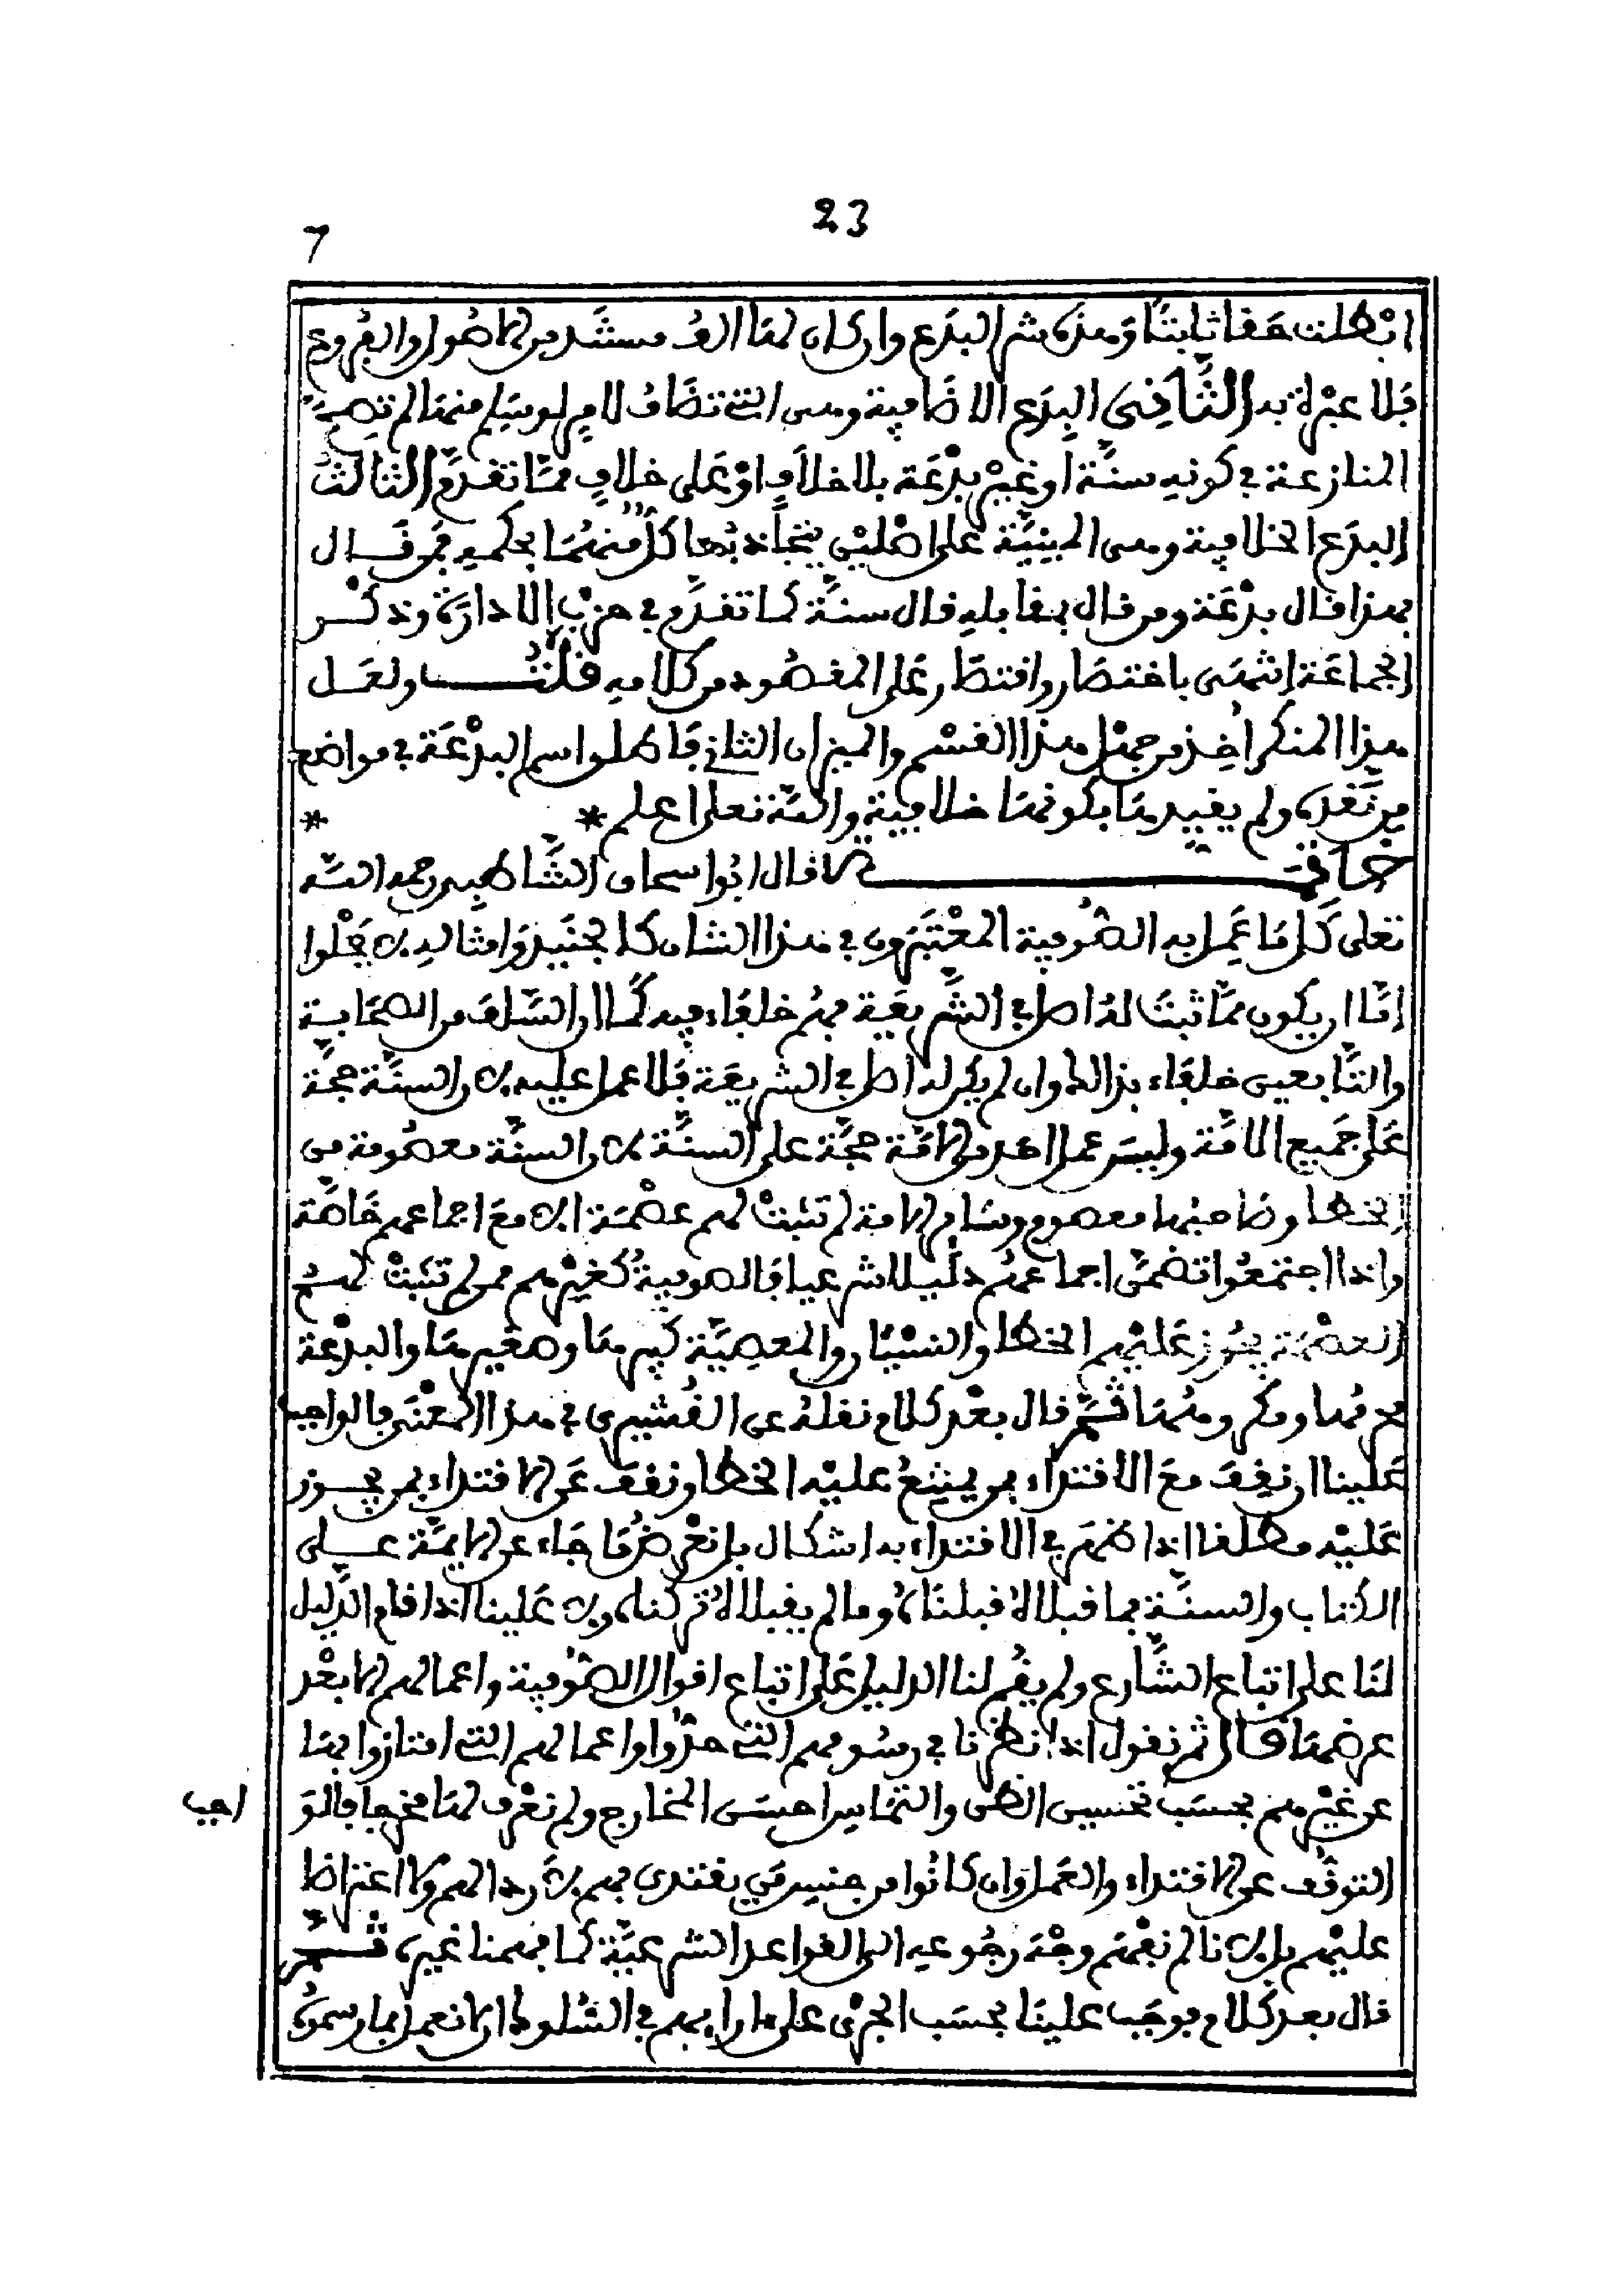 23
7
ابطلت حقا ثابتا وهذه شر البدع وان كان لها الف مستند من الاصول والفروع
فلا عبرة به الثاني البدع الاضافية وهي التي تضاف لامر لو سلم منها لم تصح
المنازعة في كونه سنة او غير بدعة بلا خلاف او على خلاف مما تقدم الثالث
البدع الخلافية وهي المبنية على اصلين يتجاذبها كل منهما بحكمه فمن قال
بهذا قال بدعة ومن قال بمقابله قال سنة كما تقدم في حزب الادارة وذكر
الجماعة انتهى باختصار واقتصار على المقصود من كلامه قلت ولعل
هذا المنكر اخذ من جهل هذا القسم والميزان الثاني فاطلوا اسم البدعة في مواضع
من نقده ولم يقيدها بكونها خلافية والله تعلى اعلم * *
خاتمة قال ابو اسحاق الشاطبي رحمه الله
تعلى كل ما عمل به الصوفية المعتبرون في هذا الشان كالجنيد وامثاله لا يخلوا
اما ان يكون مما ثبت له اصل في الشريعة فهم خلفاء فيه كما ان السلف من الصحابة
والتابعين خلفاء بذالك وان لم يكن له اصل في الشريعة فلا عمل عليه لان السنة حجة
على جميع الامة وليس عمل احد من الامة حجة على السنة لان السنة معصومة من
الخطا وصاحبها معصوم وسائر الامة لم تثبت لهم عصمة الا مع اجماعهم خاصة
واذا اجتمعوا تضمن اجماعهم دليلا شرعيا فالصوفية كغيرهم ممن لم تثبت لهم
العصمة يجوز عليهم الخطا والنسيان والمعصية كبيرها وصغيرها والبدعة
محرمها ومكروهها ثم قال بعد كلام نقله عن القشيري في هذا المعنى فالواجب
علينا ان نقف مع الاقتداء بمن يمتنع عليه الخطا ونقف عن الاقتداء بمن يجوز
عليه مطلقا اذا ظهر في الاقتداء به اشكال بل نعرض ما جاء عن الايمة على
الكتاب والسنة فما قبلاه قبلناه وما لم يقبلاه تركناه ولا علينا اذا قام الدليل
لنا على اتباع الشارع ولم يقم لنا الدليل على اتباع اقوال الصوفية واعمالهم الا بعد
عرضها قال ثم نقول اذا نظرنا في رسومهم التي حدوا واعمالهم التي امتازوا بها
عن غيرهم بحسب تحسين الظن والتماس احسن المخارج ولم نعرف لها مخرجا فالو
اجب
التوقف عن الاقتداء والعمل وان كانوا من جنس من يقتدى بهم لا ردا لهم ولا اعتراضا
عليهم بل لانا لم نفهم وجه رجوعه الى القواعد الشرعية كما فهمنا غيره ثم
قال بعد كلام فوجب علينا بحسب الجري على ارائهم في السلوك ان لا نعمل بما رسموه